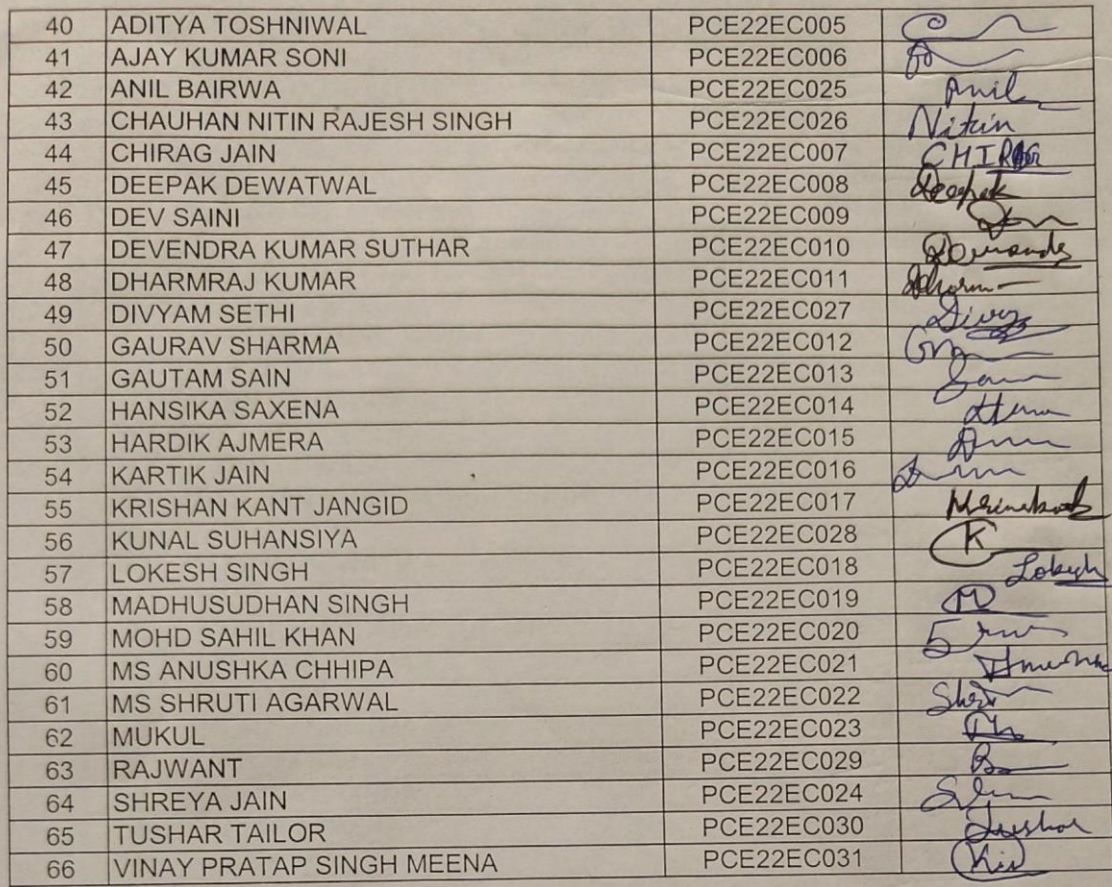 40 ADITYA TOSHNIWAL PCE22EC005
41 AJAY KUMAR SONI PCE22EC006
42 ANIL BAIRWA PCE22EC025 Anil
43 CHAUHAN NITIN RAJESH SINGH PCE22EC026 Nitin
44 CHIRAG JAIN PCE22EC007 CHIRAG
45 DEEPAK DEWATWAL PCE22EC008 Deepak
46 DEV SAINI PCE22EC009
47 DEVENDRA KUMAR SUTHAR PCE22EC010
48 DHARMRAJ KUMAR PCE22EC011
49 DIVYAM SETHI PCE22EC027
50 GAURAV SHARMA PCE22EC012
51 GAUTAM SAIN PCE22EC013
52 HANSIKA SAXENA PCE22EC014
53 HARDIK AJMERA PCE22EC015
54 KARTIK JAIN PCE22EC016
55 KRISHAN KANT JANGID PCE22EC017
56 KUNAL SUHANSIYA PCE22EC028 K
57 LOKESH SINGH PCE22EC018 Lokesh
58 MADHUSUDHAN SINGH PCE22EC019 M
59 MOHD SAHIL KHAN PCE22EC020
60 MS ANUSHKA CHHIPA PCE22EC021
61 MS SHRUTI AGARWAL PCE22EC022
62 MUKUL PCE22EC023
63 RAJWANT PCE22EC029
64 SHREYA JAIN PCE22EC024
65 TUSHAR TAILOR PCE22EC030 Tushar
66 VINAY PRATAP SINGH MEENA PCE22EC031